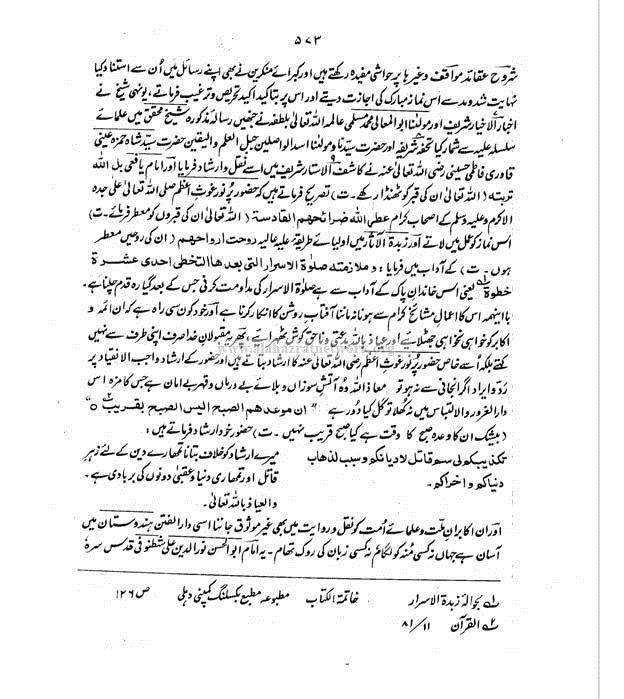 ۵۷۳
شروح عقائد مواقف وغیرہا پر حواشی مفیدہ رکھتے ہیں اور کبرائے منکرین نے بھی اپنے رسائل میں اُن سے استناد کیا
نہایت شدومد سے اس نماز مبارک کی اجازت دیتے اور اس پر بتاکید اکید تحریص و ترغیب فرماتے، یونہی شیخ نے
اخبار الاخیار شریف اور مولٰنا ابوالمعالی محمد مسلمی عاملہ اللہ تعالٰی بلطفہ نے جنھیں رسالہ مذکورہ شیخ محقق میں علمائے
سلسلہ علیہ سے شمار کیا تحفہ شریفہ اور حضرت سیّدنا و مولٰنا اسد الواصلین جبل العلم والیقین حضرت سیّد شاہ حمزہ عینی
قادری فاطمی حسینی رضی اللہ تعالٰی عنہ نے کاشف الاستار شریف میں اسے نقل و ارشاد فرمایا اور امام یافعی بل اللہ
تربتہ (اللہ تعالٰی ان کی قبر کو ٹھنڈا رکھے۔ت) تصریح فرماتے ہیں کہ حضور پُرنور غوثِ اعظم صلی اللہ تعالٰی علٰی جدہ
الاکرم وعلیہ وسلم کے اصحابِ کرام عطی اللہ ضرائحھم القادسۃ (اللہ تعالٰی ان کی قبروں کو معطر فرمائے۔ت)
اس نماز کو عمل میں لاتے اور زبدۃ الآثار میں اولیائے طریقۂ علیہ عالیہ روحت ارواحھم (ان کی روحیں معطر
ہوں۔ت) کے آداب میں فرمایا، و ملازمتہ صلوٰۃ الاسرار التی بعدھا التخطی احدی عشرۃ
خطوۃ۱؎ یعنی اس خاندانِ پاک کے آداب سے ہے صلوٰۃ الاسرار کی مداومت کرنی جس کے بعد گیارہ قدم چلنا ہے۔
بااینہمہ اس کا اعمال مشائخ کرام سے ہونا نہ ماننا آفتاب روشن کا انکار کرنا ہے اور خود کون سی راہ ہے کہ ان ائمہ و
اکابر کو خواہی نخواہی جھٹلائیے اور عیاذ باللہ بدعتی و ناحق کوش ٹھہرائیے، پھر یہ مقبولانِ خدا صرف اپنی طرف سے نہیں
کہتے بلکہ اُسے خاص حضور پُرنور غوثِ اعظم رضی اللہ تعالٰی عنہ کا ارشاد بتاتے ہیں اور حضور کے ارشاد واجب الانقیاد پر
ردّ و ایراد اگر انجانی سے نہ ہو تو معاذ اللہ وہ آتشِ سوزاں و بلائے بے درماں و قہر بے امان ہے جس کا مزہ اس
دار الغرور والالتباس میں نہ کھُلا تو کل کیا دُور ہے "ان موعدھم الصبح الیس الصبح بقریب۲؎ ہ"
(بیشک ان کا وعدہ صبح کا وقت ہے کیا صبح قریب نہیں۔ت) حضور خود ارشاد فرماتے ہیں:
تکذیبکم لی سم قاتل لادیانکم وسبب لذھاب
دنیاکم واخراکم۔
میرے ارشاد کو خلاف بتانا تمھارے دین کے لئے زہرِ
قاتل اور تمھاری دنیا و عقبٰی دونوں کی بربادی ہے۔
والعیاذ باللہ تعالٰی۔
اور ان اکابرانِ ملّت و علمائے اُمت کو نقل و روایت میں بھی غیر موثوق جاننا اسی دار الفتن ہندوستان میں
آسان ہے جہاں نہ کسی مُنہ کو لگام نہ کسی زبان کی روک تھام۔ یہ امام ابوالحسن نورالدین علی شطنوفی قدس سرہ
۱؎ بحوالہ زبدۃ الاسرار خاتمۃ الکتاب مطبوعہ مطبع بکسلنگ کمپنی دہلی ص ۱۲۶
۲؎ القرآن ۱۱/ ۸۱